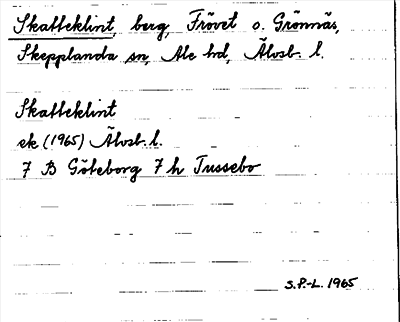 Skatteklint, berg, Frövet o. Grönnäs,
Skepplanda sn, Ale hd, Älvsb. l.
Skatteklint
ek (1965) Älvsb. l.
7 B Göteborg 7 h Tussebo
S.P.-L. 1965